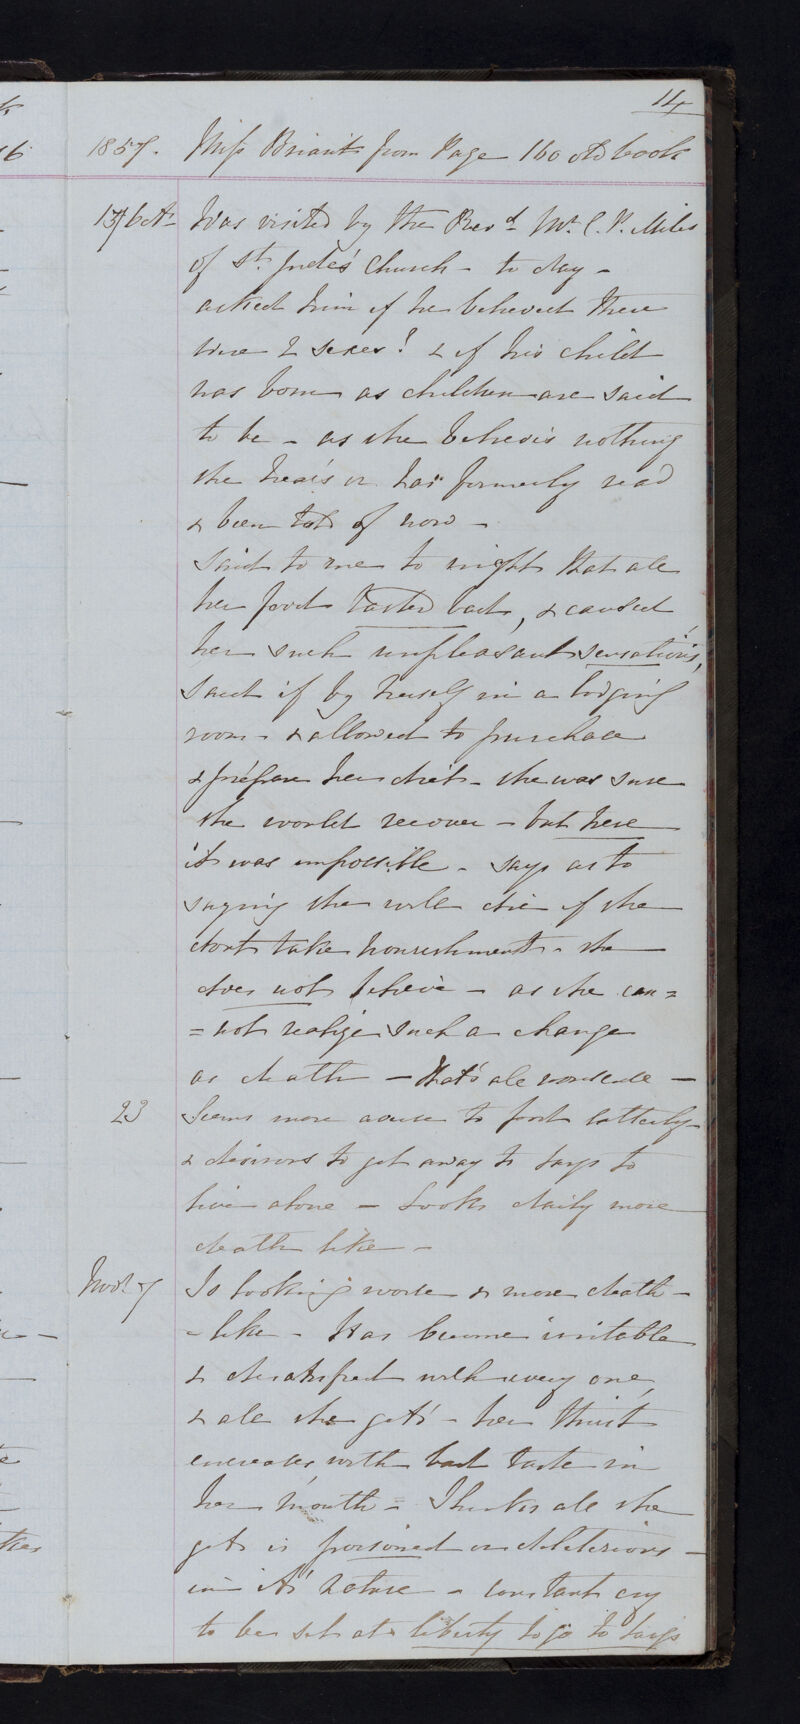 14
1857. Miss Briant from Page 160 old book
Was visited by the Revd. Mr. C. P. Miles
of St. Jude's Church - to day -
asked him if he believed there
were 2 sexes! & if his child
was born as children are said
to be - as she believes nothing
she hears or has formerly read
& been told of now -
Said to me to night that all
her food tasted bad, & caused
her such unpleasant sensations,
said if by herself in a lodging
room - & allowed to purchase
& prepare her diet - she was sure
she would recover - but here
it was impossible - says as to
saying she will die if she
dont take nourishment - she
does not believe - as she can=
=not realize such a change
as death - that's all nonsense -
23 Seems more averse to food latterly
& desirous to get away to
live alone - Looks daily more
death like -
Novr. 7 Is looking worse & more death -
- like - Has become irritable
& dissatisfied with every one,
& all she gets - her thirst
encreases with bad taste in
her mouth - Thinks all she
gets is poisoned or deleterious -
in its nature - constant cry
to be set at liberty to go to